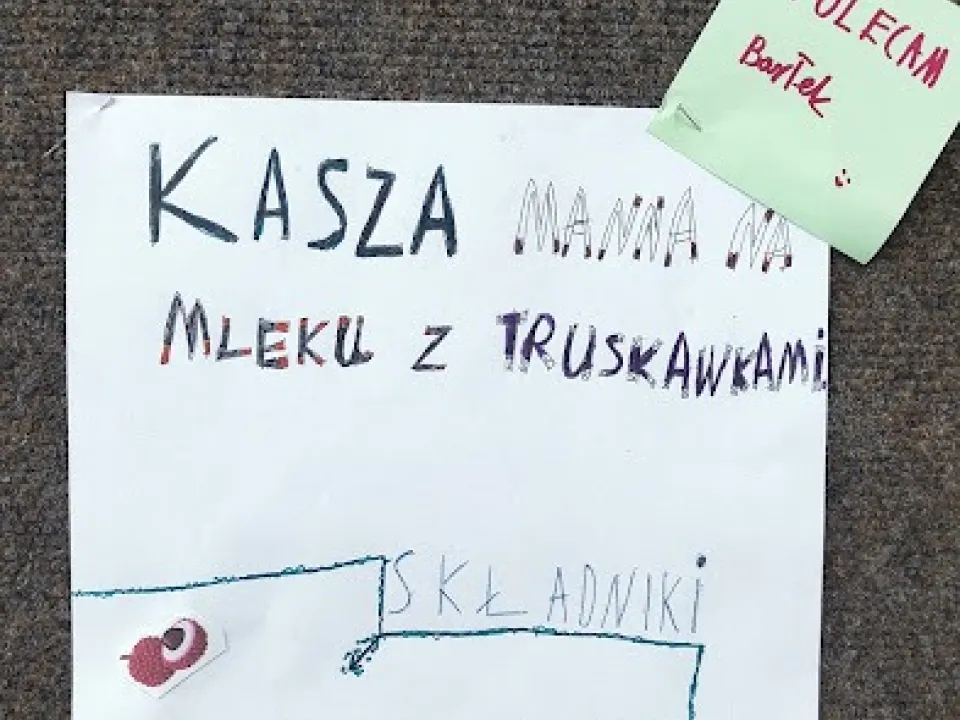 POLECAM
Bartek
KASZA MANNA NA
MLEKU Z TRUSKAWKAMI
SKŁADNIKI